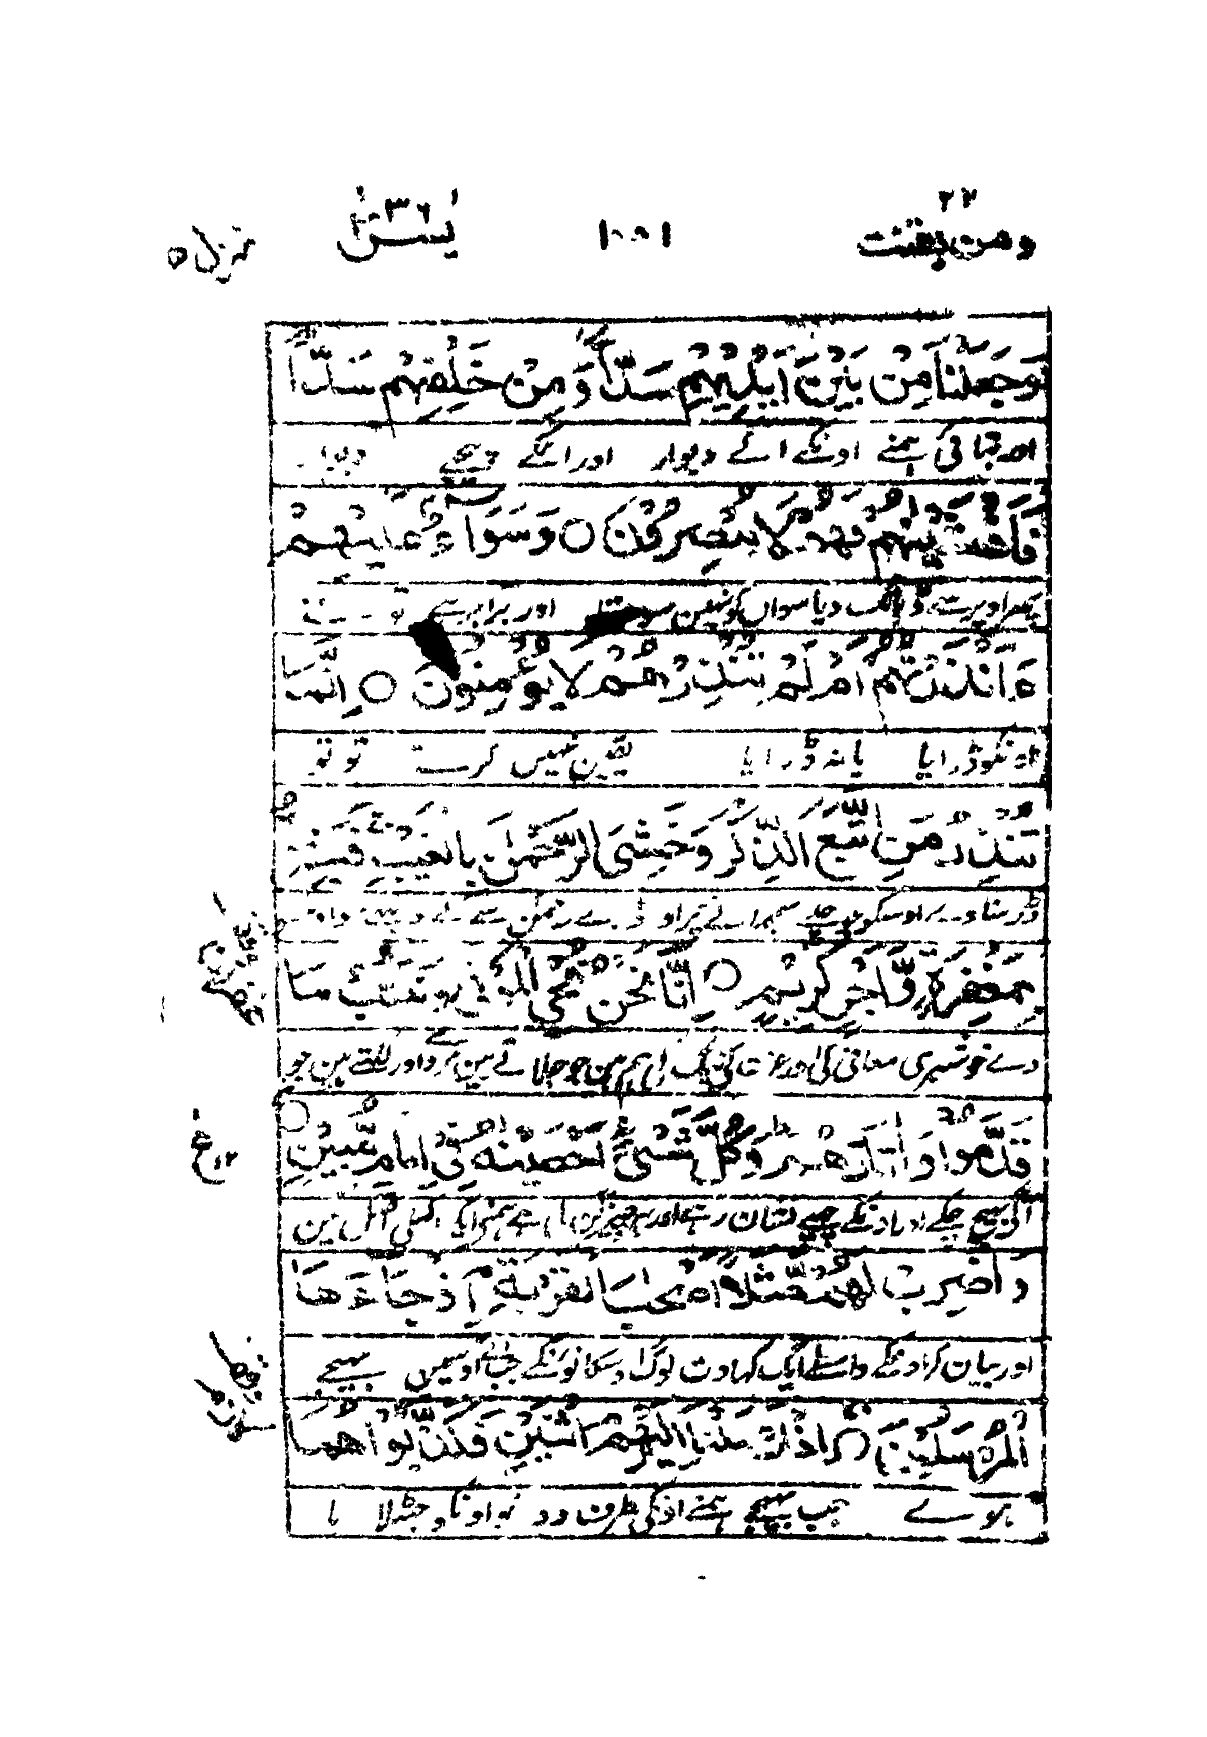 ۲۲ ۳۶
ومن یقنت ۱۰۵۱ یٰسٓ منزل ۵
وَجَعَلْنَا مِنْ بَیْنِ اَیْدِیْهِمْ سَدًّا وَّمِنْ خَلْفِهِمْ سَدًّا
اور بنائی ہمنے اونکے آگے دیوار اور انکے پیچھے دیوار
فَاَغْشَیْنٰهُمْ فَهُمْ لَا یُبْصِرُوْنَ ○ وَسَوَآءٌ عَلَیْهِمْ
پھر اوپر سے ڈہانک دیا سو اون کو نہین اور برابر ہے
ءَاَنْذَرْتَهُمْ اَمْ لَمْ تُنْذِرْهُمْ لَا یُؤْمِنُوْنَ ○ اِنَّمَا
اونکو ڈرایا یا نہ ڈرایا یقین نہیں کرتے تو تو
تُنْذِرُ مَنِ اتَّبَعَ الذِّكْرَ وَخَشِیَ الرَّحْمٰنَ بِالْغَیْبِ فَبَشِّرْهُ
ڈر سناوے اوسکو جو چلے سمجہائے پر اور ڈرے رحمٰن سے
بِمَغْفِرَةٍ وَّاَجْرٍ كَرِیْمٍ ○ اِنَّا نَحْنُ نُحْیِ الْمَوْتٰی وَنَكْتُبُ مَا
دے خوشخبری معافی کی اور عزت کی نیگ کی ہم ہین جو جلاتے ہین مردے اور لکھتے ہین جو
قَدَّمُوْا وَاٰثَارَهُمْ وَكُلَّ شَیْءٍ اَحْصَیْنٰهُ فِیْ اِمَامٍ مُّبِیْنٍ ○
آگے بھیج چکے اور اونکے پیچھے نشان رہے اور ہر چیز گن لی ہے ہمنے ایک کھلی اصل مین
وَاضْرِبْ لَهُمْ مَّثَلًا اَصْحٰبَ الْقَرْیَةِ اِذْ جَآءَهَا
اور بیان کر اونکے واسطے ایک کہاوت لوگ اوس گانونکے جب آئے اوسمیں بھیجے
الْمُرْسَلُوْنَ ○ اِذْ اَرْسَلْنَاۤ اِلَیْهِمُ اثْنَیْنِ فَكَذَّبُوْهُمَا
ہوے جب بھیجے ہمنے اونکی طرف دو تو اونکو جھٹلایا